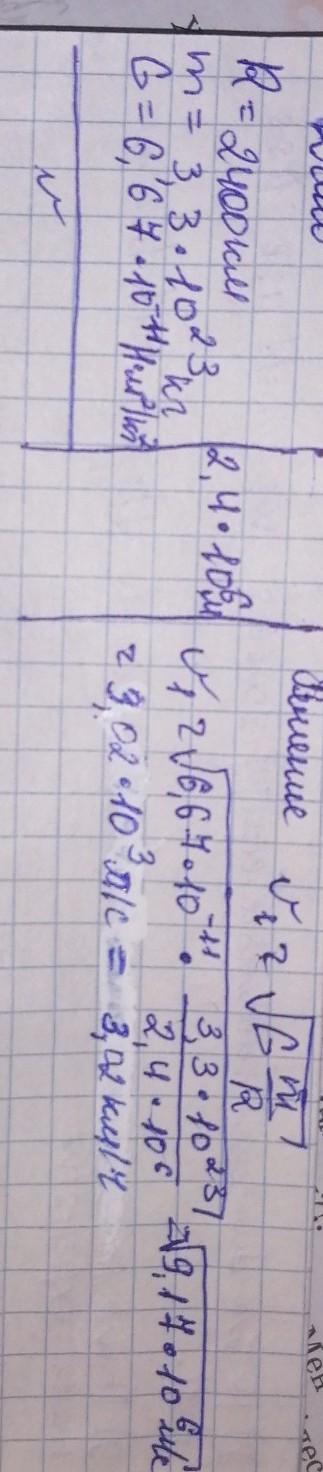 R = 2400 км
m = 3,3 · 10²³ кг
G = 6,67 · 10⁻¹¹ Нм²/кг²
v
2,4 · 10⁶ м
v₁ = √G m/R
v₁ = √6,67 · 10⁻¹¹ · 3,3 · 10²³ / 2,4 · 10⁶ = √9,17 · 10⁶ м/с
= 3,02 · 10³ м/с = 3,02 км/ч